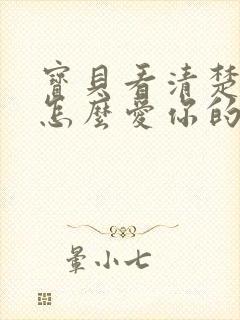 寶貝看清楚
怎麼愛你的
暈小七